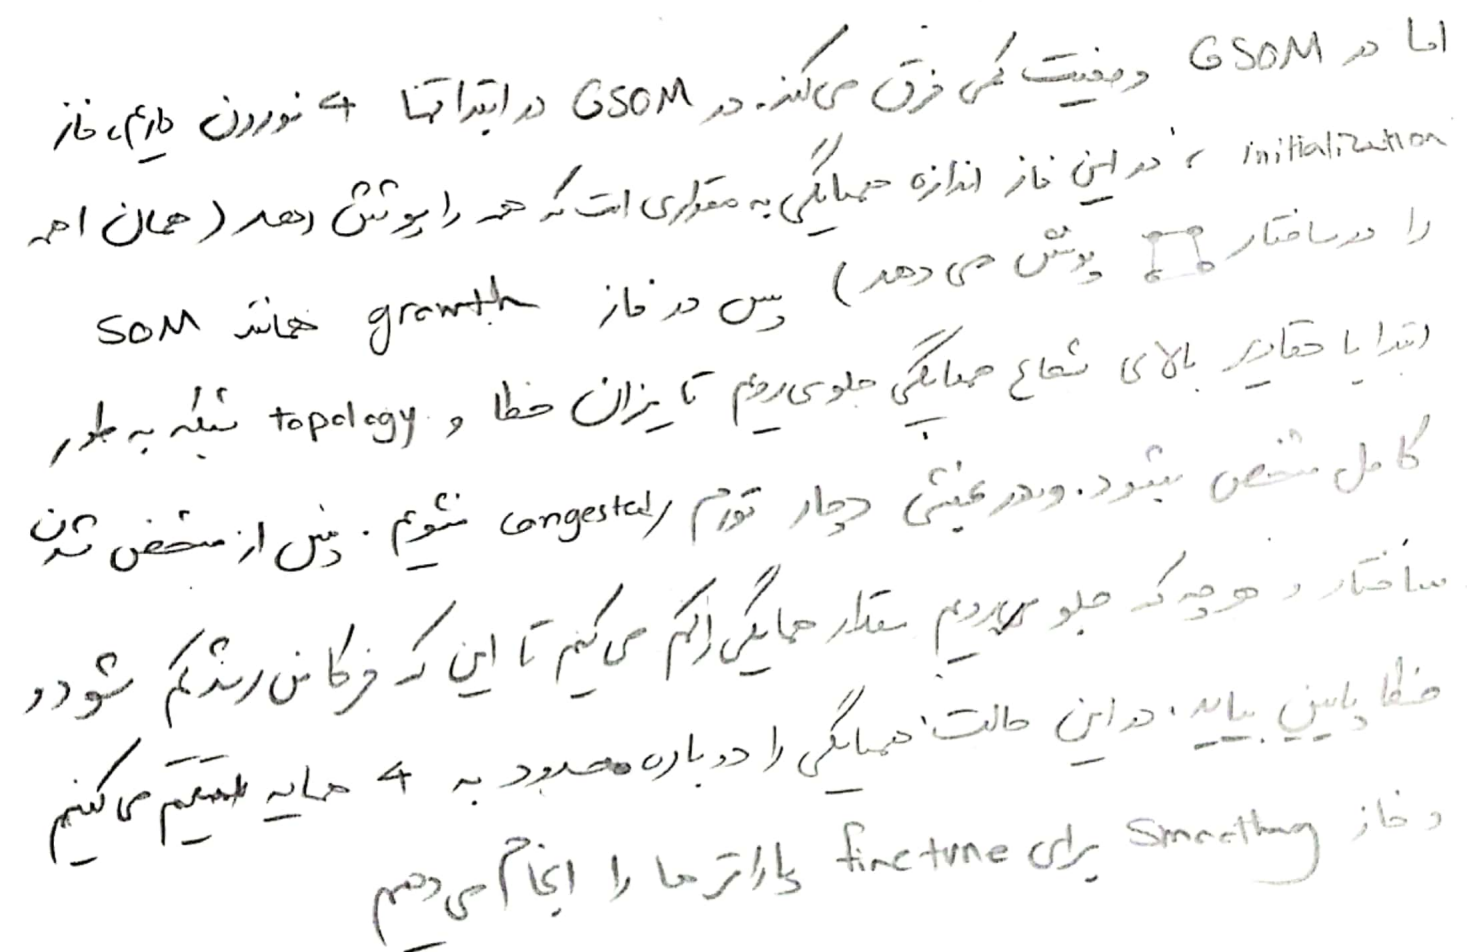 اما در GSOM وضعیت کمی فرق می‌کند. در GSOM در ابتدا تنها 4 نورون داریم، فاز
initialization، در این فاز اندازه همسایگی به مقداری است که همه را پوشش دهد (همان همه
را در ساختار پوشش می دهد) پس در فاز growth همانند SOM
ابتدا با مقادیر بالای شعاع همسایگی جلو می‌رویم تا میزان خطا و topology شبکه به طور
کامل مشخص بشود. و دچار تورم congested نشویم. پس از مشخص شدن
ساختار و هر چه که جلو می‌رویم مقدار همسایگی را کم می کنیم تا این که فرکانس رشد کم شود و
خطا پایین بیاید. در این حالت همسایگی را دوباره محدود به 4 همسایه مستقیم می کنیم
و فاز smoothing برای finetune پارامترها را انجام می دهیم